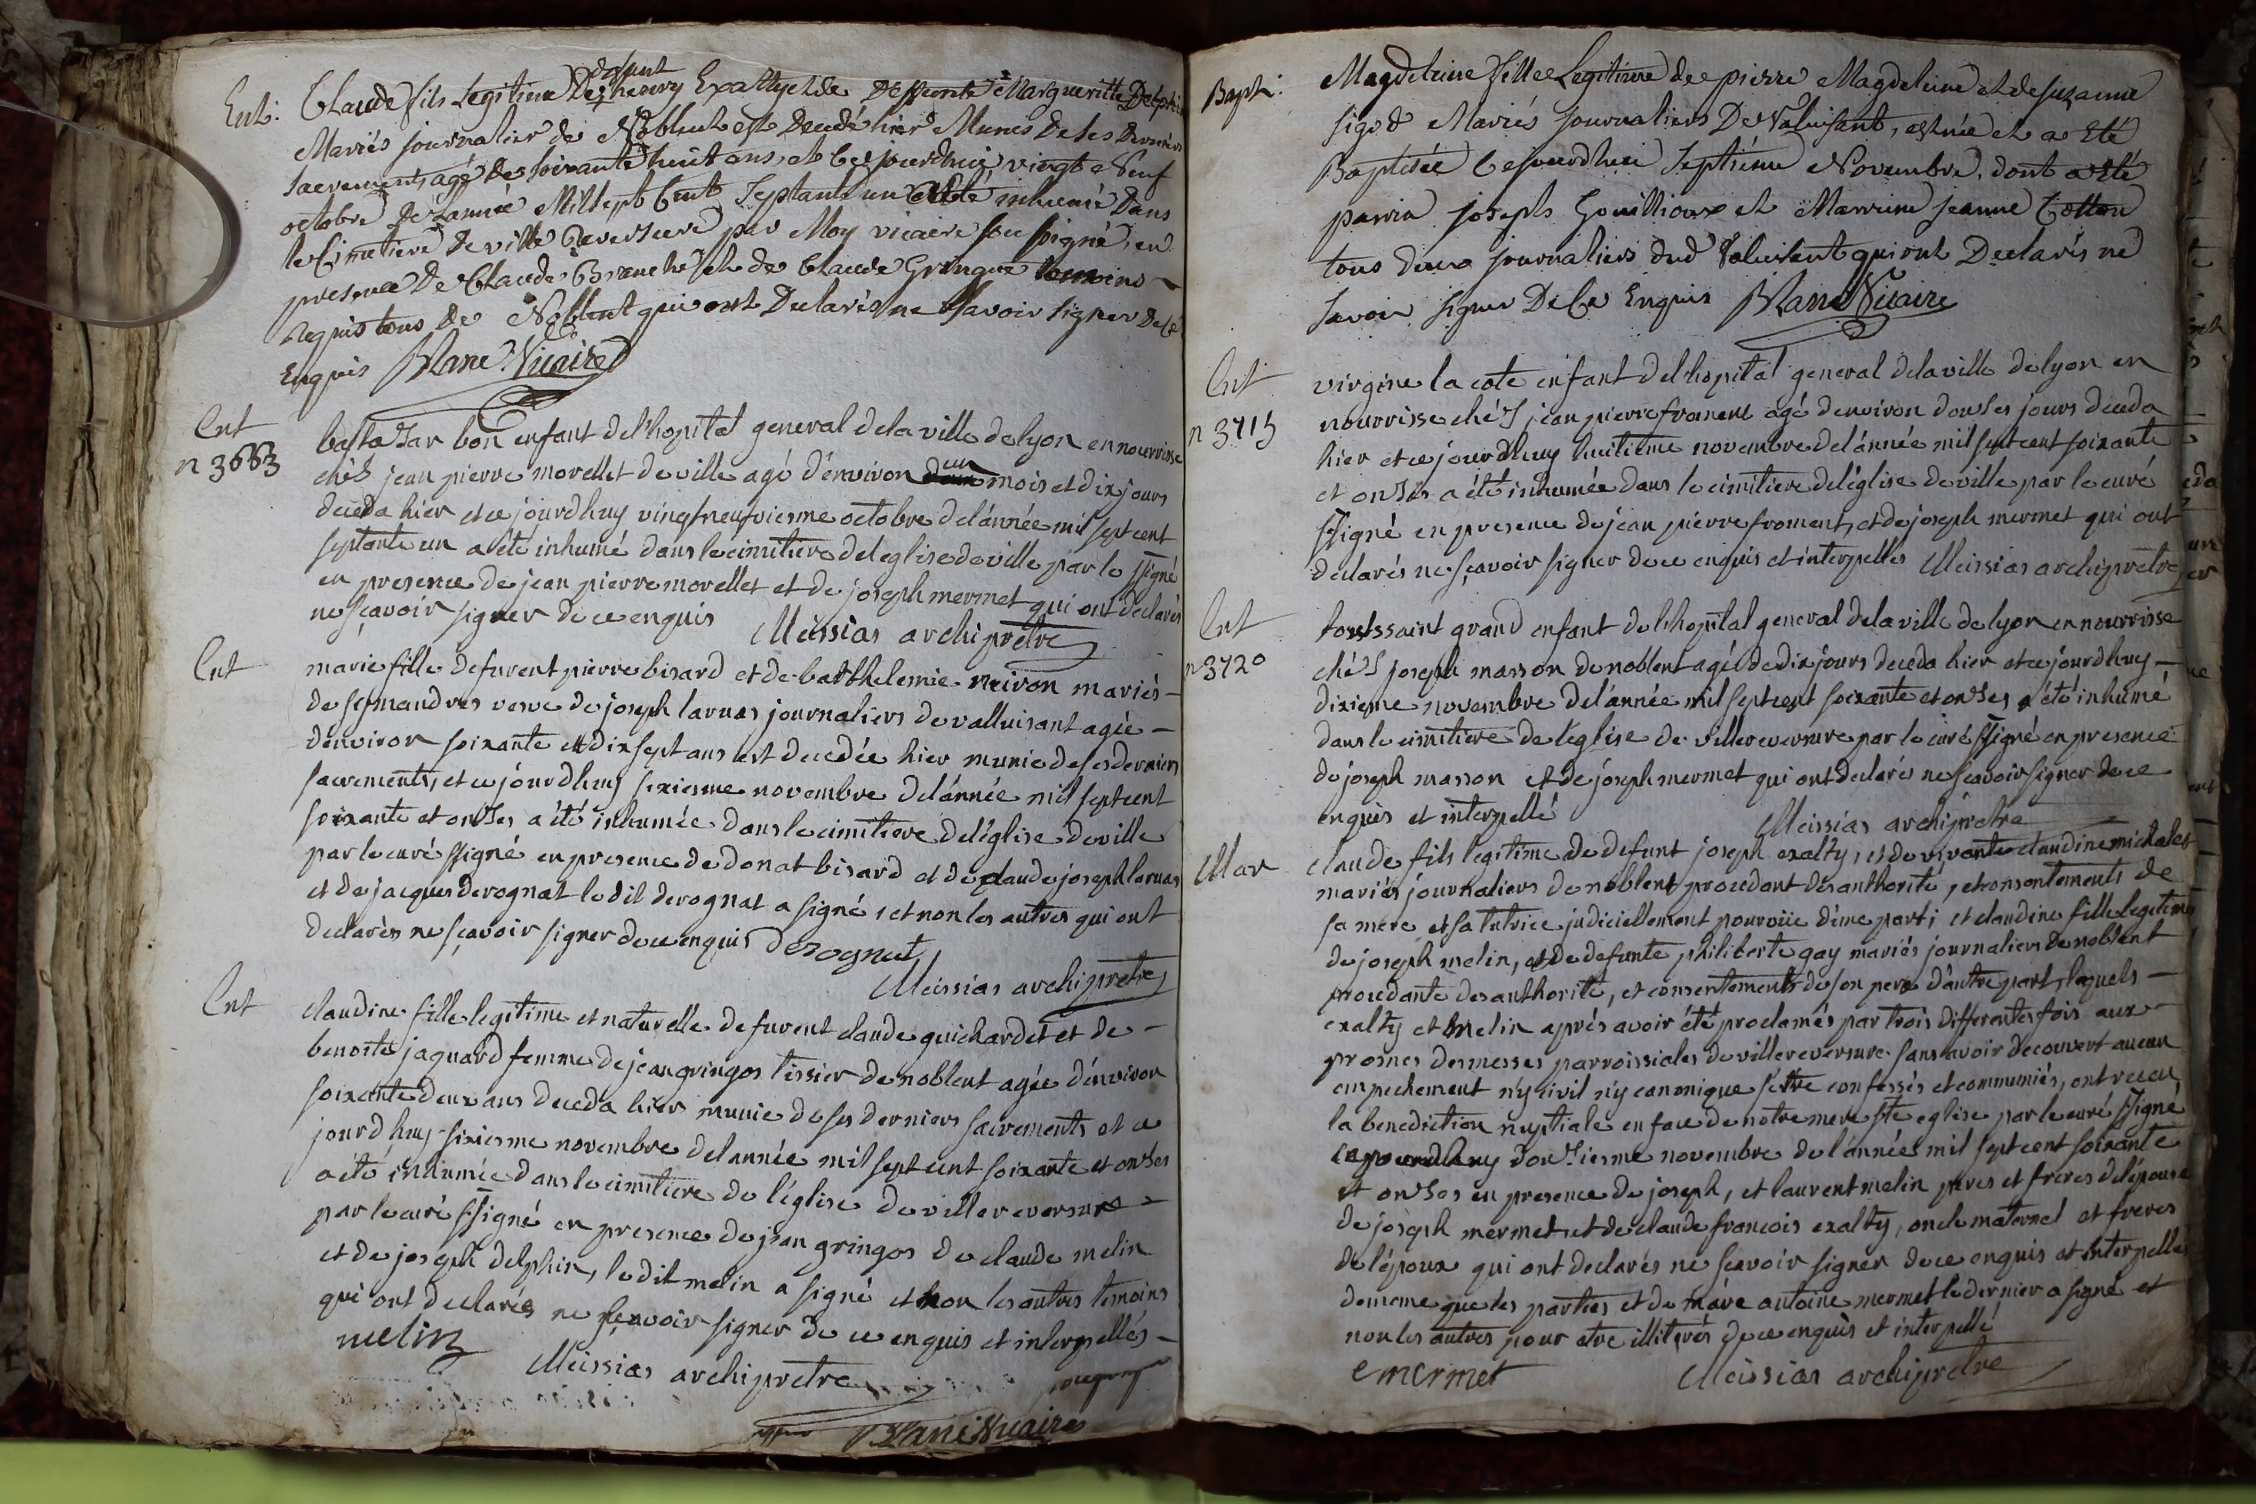 Ent:
Claude fils Legitime De defunt Exaltyet de Deffunte Margueritte Delphin
Mariés journalier de Noblent est Decedé hier Munis De ses Derniers
Sacrements, agé de soixante huit ans, et Cejourdhui vingt Neuf
octobre de Lannée Mil sept Cent Septante un a eté inhumé Dans
le Cimetiere De ville Reversure par Moy vicaire sou signé, en
presence De Claude Branche et de Claude Gringue temoins
Requis tous de Noblent qui ont Declarés ne Savoir signer De Ce
Enquis Blanc Vicaire
Ent
n 3663
baltazar bon enfant del'hopital general dela ville de lyon en nourrisse
chés jean pierre morellet de ville agé d'environ un mois et dix jours
deceda hier et ce jourdhuy vingtneufviesme octobre del'année mil sept cent
septante un a eté inhumé dans le cimitiere del'eglise de ville par le ssigné
en presence de jean pierre morellet et de joseph mermet qui ont declarés
ne sçavoir signer de ce enquis Meissias archiprêtre
Ent
marie fille defunt pierre bisard et de barthelemie neiron mariés
de simandres veuve de joseph laruas journaliers de valluisant agée
d'environ soixante et dix sept ans est decedée hier munie de ses derniers
sacrements, et ce jourdhuy sixiesme novembre del'année mil sept cent
soixante et onzes a été inhumée dans le cimitiere del'église de ville
par le curé ssigné en presence de donat bisard et de claude joseph laruas
et de jacques derognat le dit derognat a signé, et non les autres qui ont
declarés ne sçavoir signer de ce enquis derognat
Meissias archiprêtre
Ent
claudine fille legitime et naturelle defunt claude guichardet et de
benoite jaquard femme de jean gringos tissier de noblent agée d'environ
soixante deux ans deceda hier munie de ses derniers sacrements et ce
jourdhuy sixiesme novembre del'année mil sept cent soixante et onzes
a été inhumée dans le cimitiere de l'église de villereversure
par le curé ssigné en presence de jean gringos de claude melin
et de joseph delphin, le dit melin a signé et non les autres temoins
qui ont declarés ne sçavoir signer de ce enquis et interpellés
melin Meissias archiprêtre
Blanc Vicaire
Bapt:
Magdeleine fille Legitime de pierre Magdeleine et de suzanne
sigod Mariés journaliers De Valuisant, est née et a Eté
Baptisée Cejourdhui Septiéme Novembre, dont a eté
parrin joseph Gouillioux et Marrine jeanne Cotton
tous deux journaliers dud Valuisant qui ont Declarés ne
Savoir signer De Ce Enquis Blanc Vicaire
Ent
n 3715
virgine la cote enfant del'hopital general dela ville de lyon en
nourrisse chéz jean pierre froment agé d'environ douses jours deceda
hier et ce jourdhuy huitieme novembre del'année mil sept cent soixante
et onzes a été inhumée dans le cimitiere del'église de ville par le curé
ssigné en presence de jean pierre froment, et de joseph mermet qui ont
declarés ne sçavoir signer de ce enquis et interpellés Meissias archiprêtre
Ent
n 3720
toussaint grand enfant de l'hopital general dela ville de lyon en nourrisse
chéz joseph masson de noblent agé de dix jours deceda hier et ce jourdhuy
dixieme novembre del'année mil sept cent soixante et onzes a été inhumé
dans le cimitiere de l'église de villereversure par le curé ssigné en presence
de joseph masson et de joseph mermet qui ont declarés ne sçavoir signer de ce
enquis et interpellé Meissias archiprêtre
Mar
claude fils legitime de defunt joseph exalty, et de vivante claudine michalet
mariés journaliers de noblent procedant des authorité, et consentements de
sa mere et sa tutrice judiciellement pourvüe d'une part; et claudine fille legitime
de joseph melin, et de defunte philiberte gay mariés journaliers de noblent
procedante des authorité, et consentements de son pere d'autre part, lesquels
exalty et melin aprés avoir été proclamés par trois differentes fois aux
prosnes des messes parroissiales de villereversure sans avoir decouvert aucun
empechement n'y civil n'y canonique s'etre confessés et communiés, ont receu
la benediction nuptiale en face de notre mere ste eglise par le curé ssigné
cejourdhuy douziesme novembre de l'année mil sept cent soixante
et onzes en presence de joseph, et laurent melin peres et freres del'épouse
de joseph mermet, et de claude francois exalty, oncle maternel et freres
de l'époux qui ont declarés ne sçavoir signer de ce enquis et interpellés
de meme que les parties et de marc antoine mermet le dernier a signé et
non les autres pour etre illiterés de ce enquis et interpellé
mermet Meissias archiprêtre